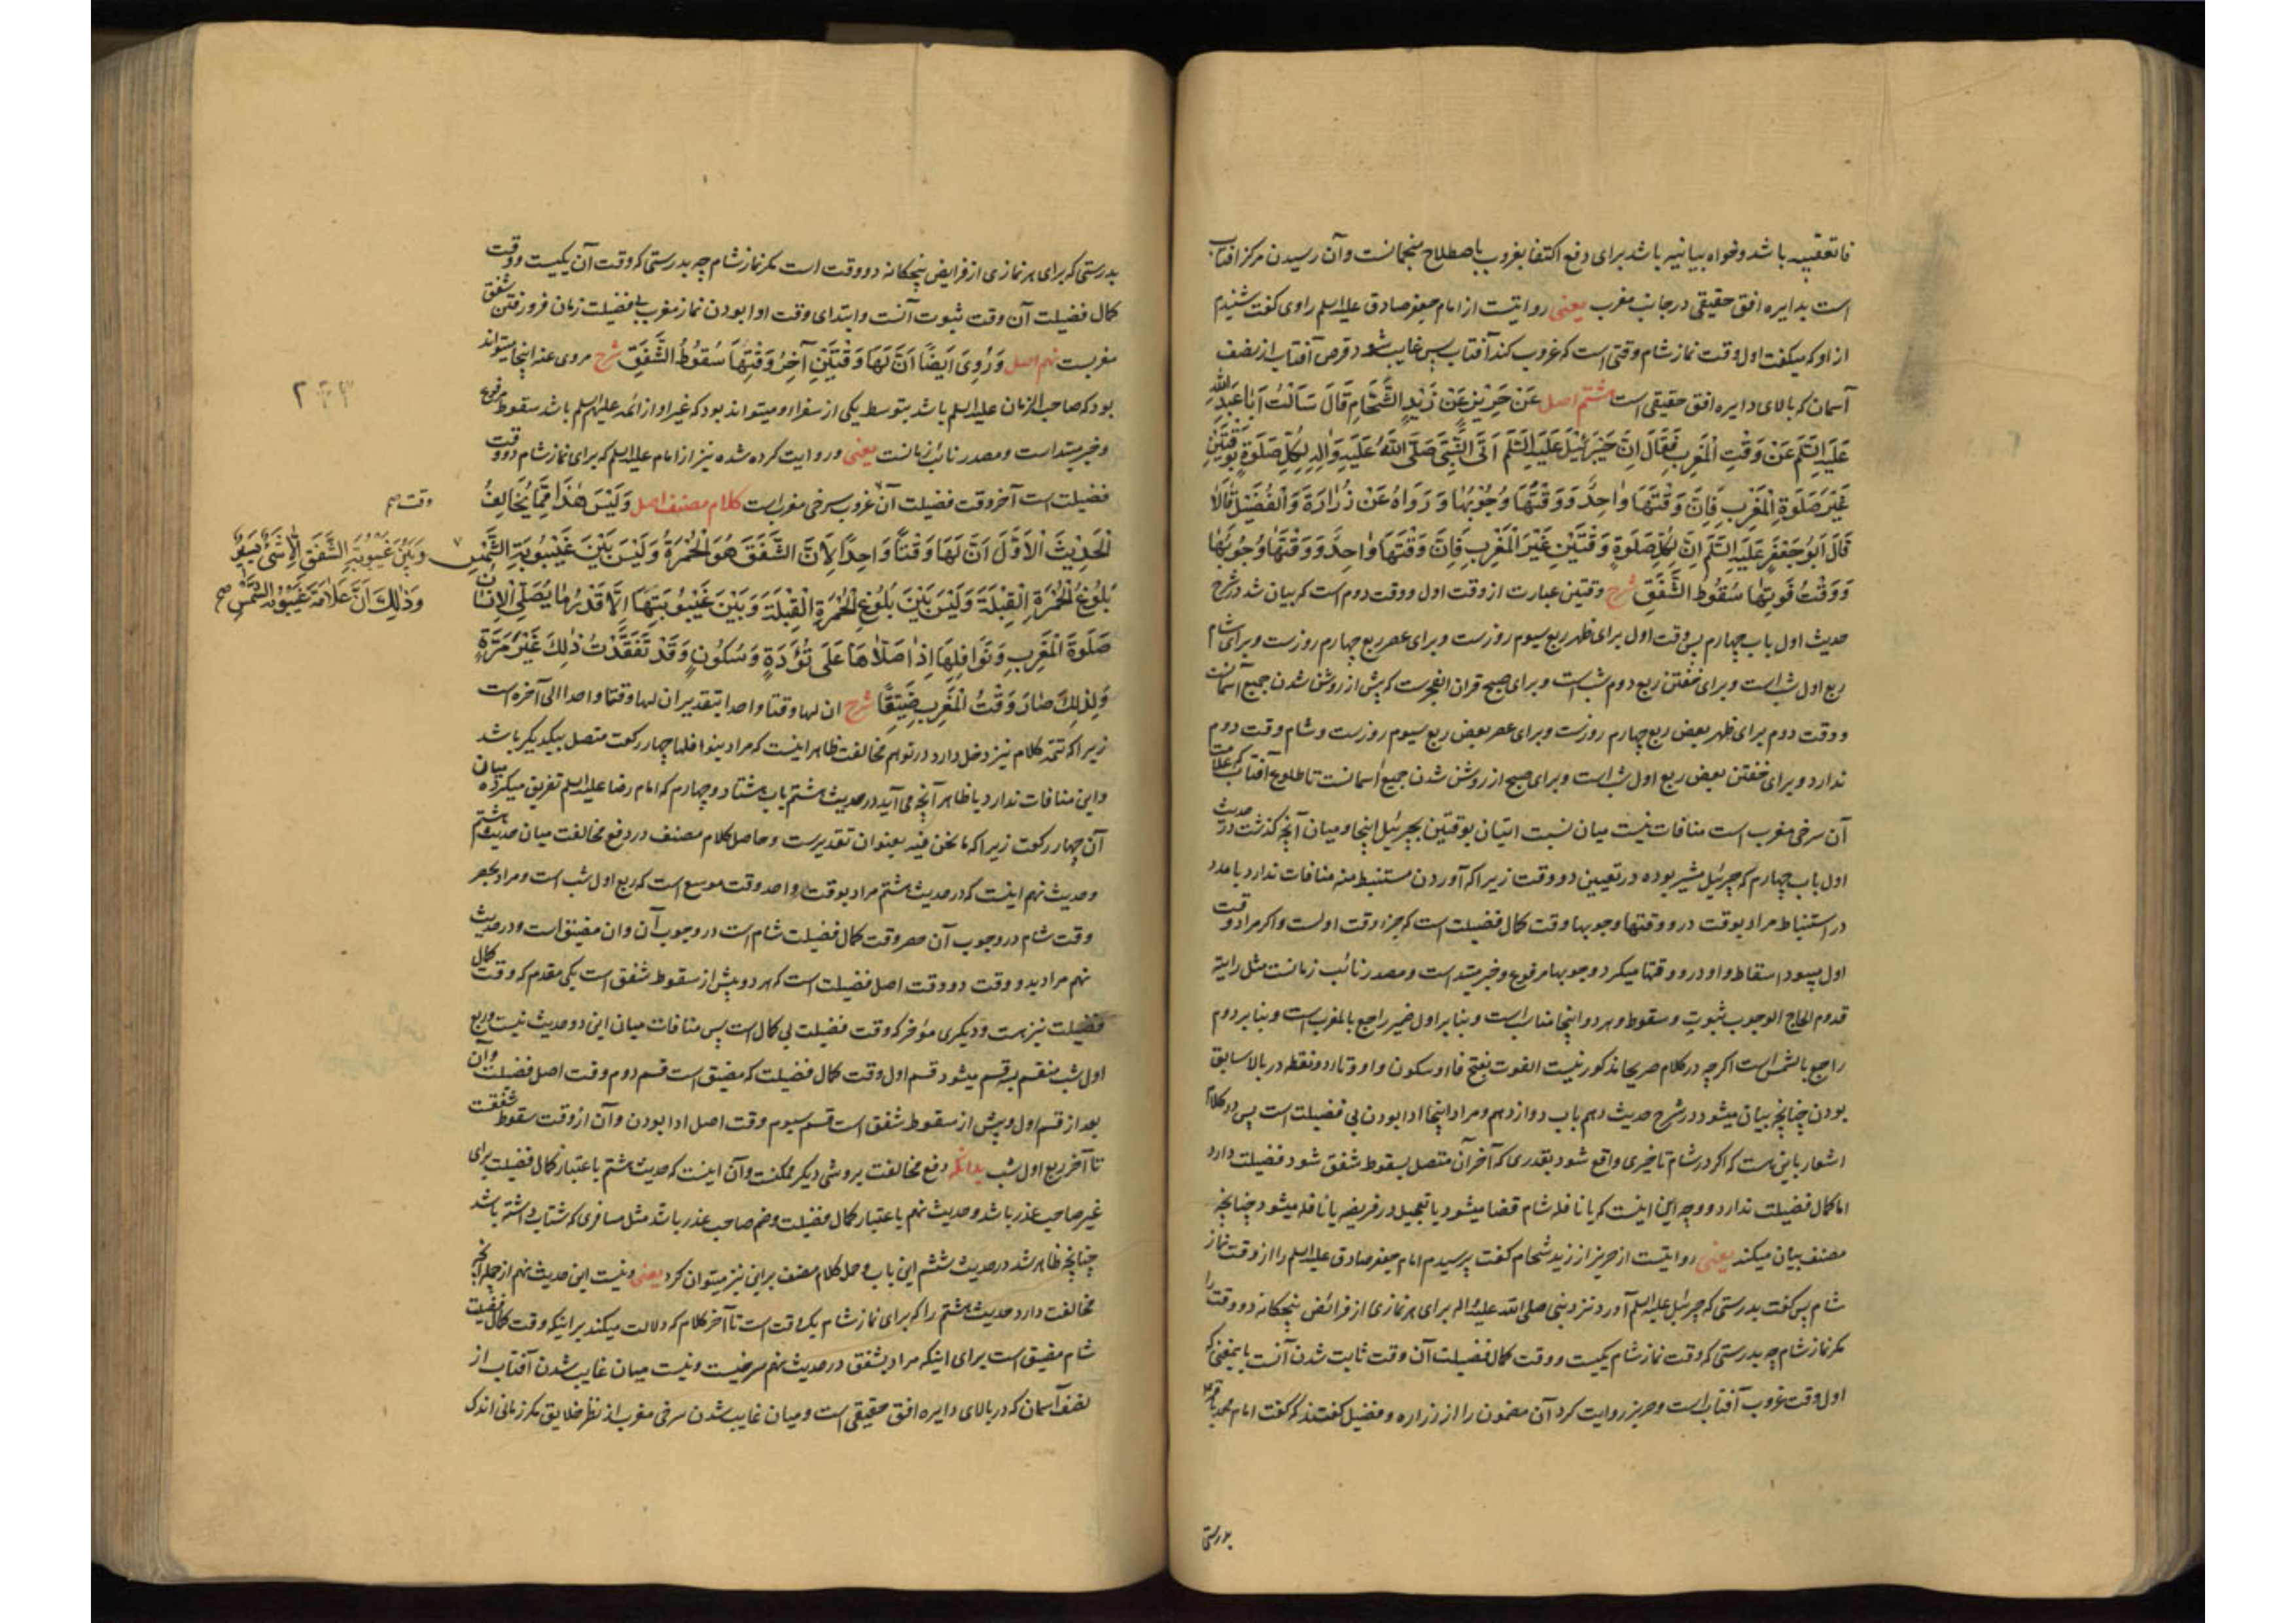 فا تعقیبیه باشد و خواه بیانیه باشد برای دفع اکتفا بغروب باصطلاح منجمانست و آن رسیدن مرکز آفتاب
است بدایره افق حقیقی در جانب مغرب یعنی روایتست از امام جعفر صادق علیه السلم راوی گفت شنیدم
از او که میگفت اول وقت نماز شام وقتی است که غروب کند آفتاب پس غایب شود قرص آفتاب از نصف
آسمان که بالای دایره افق حقیقی است هشتم اصل عَنْ حَرِيزٍ عَنْ زَيْدٍ الشَّحَّامِ قَالَ سَأَلْتُ أَبَا عَبْدِ اللّٰه
عَلَيْهِ السَّلَم عَنْ وَقْتِ الْمَغْرِبِ فَقَالَ إِنَّ جَبْرَئِيلَ عَلَيْهِ السَّلَم أَتَى النَّبِيَّ صَلَّى اللّٰهُ عَلَيْهِ وَآلِهِ لِكُلِّ صَلٰوةٍ بِوَقْتَيْنِ
غَيْرَ صَلٰوةِ الْمَغْرِبِ فَإِنَّ وَقْتَهَا وَاحِدٌ وَوَقْتَهَا وُجُوبُهَا وَرَوَاهُ عَنْ زُرَارَةَ وَالْفُضَيْلِ قَالَا
قَالَ أَبُو جَعْفَرٍ عَلَيْهِ السَّلَم إِنَّ لِكُلِّ صَلٰوةٍ وَقْتَيْنِ غَيْرَ الْمَغْرِبِ فَإِنَّ وَقْتَهَا وَاحِدٌ وَوَقْتَهَا وُجُوبُهَا
وَوَقْتُ فَوْتِهَا سُقُوطُ الشَّفَقِ شرح وقتین عبارت از وقت اول و وقت دوم است که بیان شد در شرح
حدیث اول باب چهارم پس وقت اول برای ظهر ربع سیوم روزست و برای عصر ربع چهارم روزست و برای شام
ربع اول شب است و برای خفتن ربع دوم شب است و برای صبح قران الفجرست که پیش از روشن شدن جمیع آسمانست
و وقت دوم برای ظهر بعض ربع چهارم روزست و برای عصر بعض ربع سیوم روزست و شام وقت دوم
ندارد و برای خفتن بعض ربع اول شب است و برای صبح از روشن شدن جمیع آسمانست تا طلوع آفتاب که علامت
آن سرخی مغرب است منافات نیست میان نسبت اتیان بوقتین بجبرئیل اینجا و میان آنچه گذشت در حدیث
اول باب چهارم که جبرئیل مشیر بوده در تعیین دو وقت زیرا که آوردن مستنبط منه منافات ندارد با مدد
در استنباط مراد بوقت در و وقتها وجوبها وقت کمال فضیلت است که جزء وقت اولست و اگر مراد وقت
اول میبود اسقاط واو در و وقتها میکرد وجوبها مرفوع و خبر مبتداست و مصدر نائب زمانست مثل رایته
قدوم الحاج الوجوب ثبوت و سقوط و هر دو اینجا مناسب است و بنا بر اول ضمیر راجع بالمغرب است و بنا بر دوم
راجع بالشمس است اگرچه در کلام صریحا مذکور نیست الفوت بفتح فا و سکون واو و تا دو نقطه در بالا سابق
بودن چنانچه بیان میشود در شرح حدیث دهم باب دوازدهم و مراد اینجا ادا بودن بی فضیلت است پس در کلام
اشعار باین هست که اگر در شام تاخیری واقع شود بقدری که آخر آن متصل بسقوط شفق شود فضیلت دارد
اما کمال فضیلت ندارد و وجه این اینست که یا نافله شام قضا میشود یا تعجیل در فریضه یا نافله میشود چنانچه
مصنف بیان میکند یعنی روایتست از حریز از زید شحام گفت پرسیدم امام جعفر صادق علیه السلم را از وقت نماز
شام پس گفت بدرستی که جبرئیل علیه السلم آورد نزد نبی صلی الله علیه و اله برای هر نمازی از فرائض پنجگانه دو وقت را
مگر نماز شام چه بدرستی که وقت نماز شام یکیست و وقت کمال فضیلت آن وقت ثابت شدن آنست باینمعنی که
اول وقت غروب آفتاب است و حریز روایت کرد آن مضمون را از زراره و فضیل گفتند که گفت امام محمد باقر
بدرستی
بدرستی که برای هر نمازی از فرایض پنجگانه دو وقت است مگر نماز شام چه بدرستی که وقت آن یکیست و وقت
کمال فضیلت آن وقت ثبوت آنست و ابتدای وقت ادا بودن نماز مغرب بی فضیلت زمان فرو رفتن شفق
مغربست نهم اصل وَرُوِيَ أَيْضًا أَنَّ لَهَا وَقْتَيْنِ آخِرُ وَقْتِهَا سُقُوطُ الشَّفَقِ شرح مروی عنه اینجا میتواند
بود که صاحب الزمان علیه السلم باشد بتوسط یکی از سفرا و میتواند بود که غیر او از ائمه علیهم السلم باشد سقوط مرفوع
و خبر مبتداست و مصدر نائب زمانست یعنی و روایت کرده شده نیز از امام علیه السلم که برای نماز شام دو وقت
فضیلت است آخر وقت فضیلت آن غروب سرخی مغرب است کلام مصنف اصل وَلَيْسَ هٰذَا مِمَّا يُخَالِفُ
وقت صح
الْحَدِيثَ الْأَوَّلَ أَنَّ لَهَا وَقْتًا وَاحِدًا لِأَنَّ الشَّفَقَ هُوَ الْحُمْرَةُ وَلَيْسَ بَيْنَ غَيْبُوبَةِ الشَّمْسِ
وَبَيْنَ غَيْبُوبَةِ الشَّفَقِ إِلَّا شَيْءٌ يَسِيرٌ
وَذٰلِكَ أَنَّ عَلَامَةَ غَيْبُوبَةِ الشَّمْسِ صح
بُلُوغُ الْحُمْرَةِ الْقِبْلَةَ وَلَيْسَ بَيْنَ بُلُوغِ الْحُمْرَةِ الْقِبْلَةَ وَبَيْنَ غَيْبُوبَتِهَا إِلَّا قَدْرُ مَا يُصَلِّي الْإِنْسَانُ
صَلٰوةَ الْمَغْرِبِ وَنَوَافِلِهَا إِذَا صَلَّاهَا عَلَى تُؤَدَةٍ وَسُكُونٍ وَقَدْ تَفَقَّدْتُ ذٰلِكَ غَيْرَ مَرَّةٍ
وَلِذٰلِكَ صَارَ وَقْتُ الْمَغْرِبِ ضَيِّقًا شرح ان لها وقتا واحدا بتقدیر ان لها وقتا واحدا الی آخره است
زیرا که تتمه کلام نیز دخل دارد در توهم مخالفت ظاهر اینست که مراد بنوافلها چهار رکعت متصل بیکدیگر باشد
و این منافات ندارد با ظاهر آنچه می آید در حدیث هشتم باب هشتاد و چهارم که امام رضا علیه السلم تفریق میکرده میان
آن چهار رکعت زیرا که ما نحن فیه بعنوان تقدیرست و حاصل کلام مصنف در دفع مخالفت میان حدیث هشتم
و حدیث نهم اینست که در حدیث هشتم مراد بوقت واحد وقت موسع است که ربع اول شب است و مراد بحصر
وقت شام در وجوب آن حصر وقت کمال فضیلت شام است در وجوب آن و ان مضیق است و در حدیث
نهم مراد بدو وقت دو وقت اصل فضیلت است که هر دو پیش از سقوط شفق است یکی مقدم که وقت کمال
فضیلت نیز هست و دیگری مؤخر که وقت فضیلت بی کمال است پس منافات میان این دو حدیث نیست و ربع
اول شب منقسم بسه قسم میشود قسم اول وقت کمال فضیلت که مضیق است قسم دوم وقت اصل فضیلت و آن
بعد از قسم اول و پیش از سقوط شفق است قسم سیوم وقت اصل ادا بودن و آن از وقت سقوط شفقست
تا آخر ربع اول شب بدانکه دفع مخالفت بروشی دیگر ممکنست و آن اینست که حدیث هشتم باعتبار کمال فضیلت برای
غیر صاحب عذر باشد و حدیث نهم باعتبار کمال فضیلت و ضم صاحب عذر باشد مثل مسافری که شتاب داشته باشد
چنانچه ظاهر شد در حدیث ششم این باب و حل کلام مصنف بر این نیز میتوان کرد یعنی و نیست این حدیث نهم از جمله آنچه
مخالفت دارد حدیث هشتم را که برای نماز شام یک وقت است تا آخر کلام که دلالت میکند بر اینکه وقت کمال فضیلت
شام مضیق است برای اینکه مراد بشفق در حدیث نهم سرخیست و نیست میان غایب شدن آفتاب از
نصف آسمان که در بالای دایره افق حقیقی است و میان غایب شدن سرخی مغرب از نظر خلایق مگر زمانی اندک